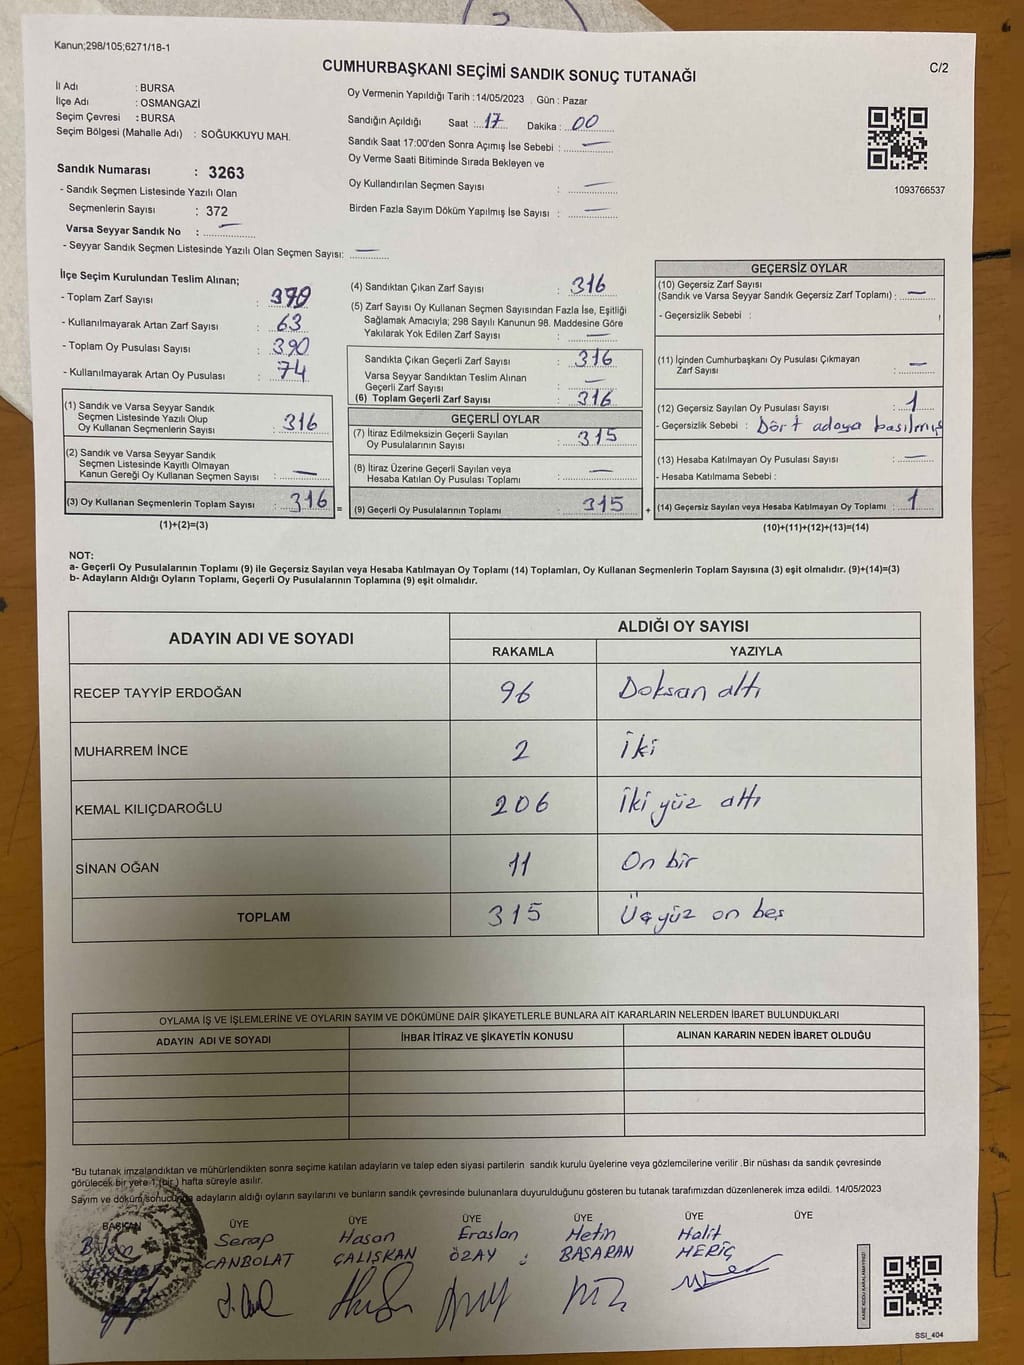 2
Kanun;298/105;6271/18-1
CUMHURBAŞKANI SEÇİMİ SANDIK SONUÇ TUTANAĞI
C/2
İl Adı : BURSA
İlçe Adı : OSMANGAZİ
Seçim Çevresi : BURSA
Seçim Bölgesi (Mahalle Adı) : SOĞUKKUYU MAH.
Sandık Numarası : 3263
- Sandık Seçmen Listesinde Yazılı Olan
Seçmenlerin Sayısı : 372
Varsa Seyyar Sandık No : —
- Seyyar Sandık Seçmen Listesinde Yazılı Olan Seçmen Sayısı: —
Oy Vermenin Yapıldığı Tarih : 14/05/2023 Gün : Pazar
Sandığın Açıldığı Saat : 17 Dakika : 00
Sandık Saat 17:00'den Sonra Açımış İse Sebebi : —
Oy Verme Saati Bitiminde Sırada Bekleyen ve
Oy Kullandırılan Seçmen Sayısı : —
Birden Fazla Sayım Döküm Yapılmış İse Sayısı : —
1093766537
İlçe Seçim Kurulundan Teslim Alınan;
- Toplam Zarf Sayısı :
- Kullanılmayarak Artan Zarf Sayısı : 63
- Toplam Oy Pusulası Sayısı : 390
- Kullanılmayarak Artan Oy Pusulası : 74
(1) Sandık ve Varsa Seyyar Sandık
Seçmen Listesinde Yazılı Olup
Oy Kullanan Seçmenlerin Sayısı : 316
(2) Sandık ve Varsa Seyyar Sandık
Seçmen Listesinde Kayıtlı Olmayan
Kanun Gereği Oy Kullanan Seçmen Sayısı : —
(3) Oy Kullanan Seçmenlerin Toplam Sayısı : 316 =
(1)+(2)=(3)
(4) Sandıktan Çıkan Zarf Sayısı : 316
(5) Zarf Sayısı Oy Kullanan Seçmen Sayısından Fazla İse, Eşitliği
Sağlamak Amacıyla; 298 Sayılı Kanunun 98. Maddesine Göre
Yakılarak Yok Edilen Zarf Sayısı : —
Sandıkta Çıkan Geçerli Zarf Sayısı : 316
Varsa Seyyar Sandıktan Teslim Alınan
Geçerli Zarf Sayısı : —
(6) Toplam Geçerli Zarf Sayısı : 316
GEÇERLİ OYLAR
(7) İtiraz Edilmeksizin Geçerli Sayılan
Oy Pusulalarının Sayısı : 315
(8) İtiraz Üzerine Geçerli Sayılan veya
Hesaba Katılan Oy Pusulası Toplamı : —
(9) Geçerli Oy Pusulalarının Toplamı : 315 +
GEÇERSİZ OYLAR
(10) Geçersiz Zarf Sayısı
(Sandık ve Varsa Seyyar Sandık Geçersiz Zarf Toplamı) : —
- Geçersizlik Sebebi :
(11) İçinden Cumhurbaşkanı Oy Pusulası Çıkmayan
Zarf Sayısı : —
(12) Geçersiz Sayılan Oy Pusulası Sayısı : 1
- Geçersizlik Sebebi : Dört adaya basılmış
(13) Hesaba Katılmayan Oy Pusulası Sayısı : —
- Hesaba Katılmama Sebebi :
(14) Geçersiz Sayılan veya Hesaba Katılmayan Oy Toplamı : 1
(10)+(11)+(12)+(13)=(14)
NOT:
a- Geçerli Oy Pusulalarının Toplamı (9) ile Geçersiz Sayılan veya Hesaba Katılmayan Oy Toplamı (14) Toplamları, Oy Kullanan Seçmenlerin Toplam Sayısına (3) eşit olmalıdır. (9)+(14)=(3)
b- Adayların Aldığı Oyların Toplamı, Geçerli Oy Pusulalarının Toplamına (9) eşit olmalıdır.
ADAYIN ADI VE SOYADI ALDIĞI OY SAYISI
RAKAMLA YAZIYLA
RECEP TAYYİP ERDOĞAN 96 Doksan altı
MUHARREM İNCE 2 İki
KEMAL KILIÇDAROĞLU 206 İki yüz altı
SİNAN OĞAN 11 On bir
TOPLAM 315 Üç yüz on beş
OYLAMA İŞ VE İŞLEMLERİNE VE OYLARIN SAYIM VE DÖKÜMÜNE DAİR ŞİKAYETLERLE BUNLARA AİT KARARLARIN NELERDEN İBARET BULUNDUKLARI
ADAYIN ADI VE SOYADI İHBAR İTİRAZ VE ŞİKAYETİN KONUSU ALINAN KARARIN NEDEN İBARET OLDUĞU
*Bu tutanak imzalandıktan ve mühürlendikten sonra seçime katılan adayların ve talep eden siyasi partilerin sandık kurulu üyelerine veya gözlemcilerine verilir .Bir nüshası da sandık çevresinde
görülecek bir yere 1 (bir ) hafta süreyle asılır.
Sayım ve döküm sonucunda adayların aldığı oyların sayılarını ve bunların sandık çevresinde bulunanlara duyurulduğunu gösteren bu tutanak tarafımızdan düzenlenerek imza edildi. 14/05/2023
BAŞKAN ÜYE ÜYE ÜYE ÜYE ÜYE ÜYE
Serap Hasan Eraslan Metin Halit
CANBOLAT ÇALIŞKAN ÖZAY BAŞARAN MERİÇ
KARE KODU KARALAMAYINIZ!
SSI_404